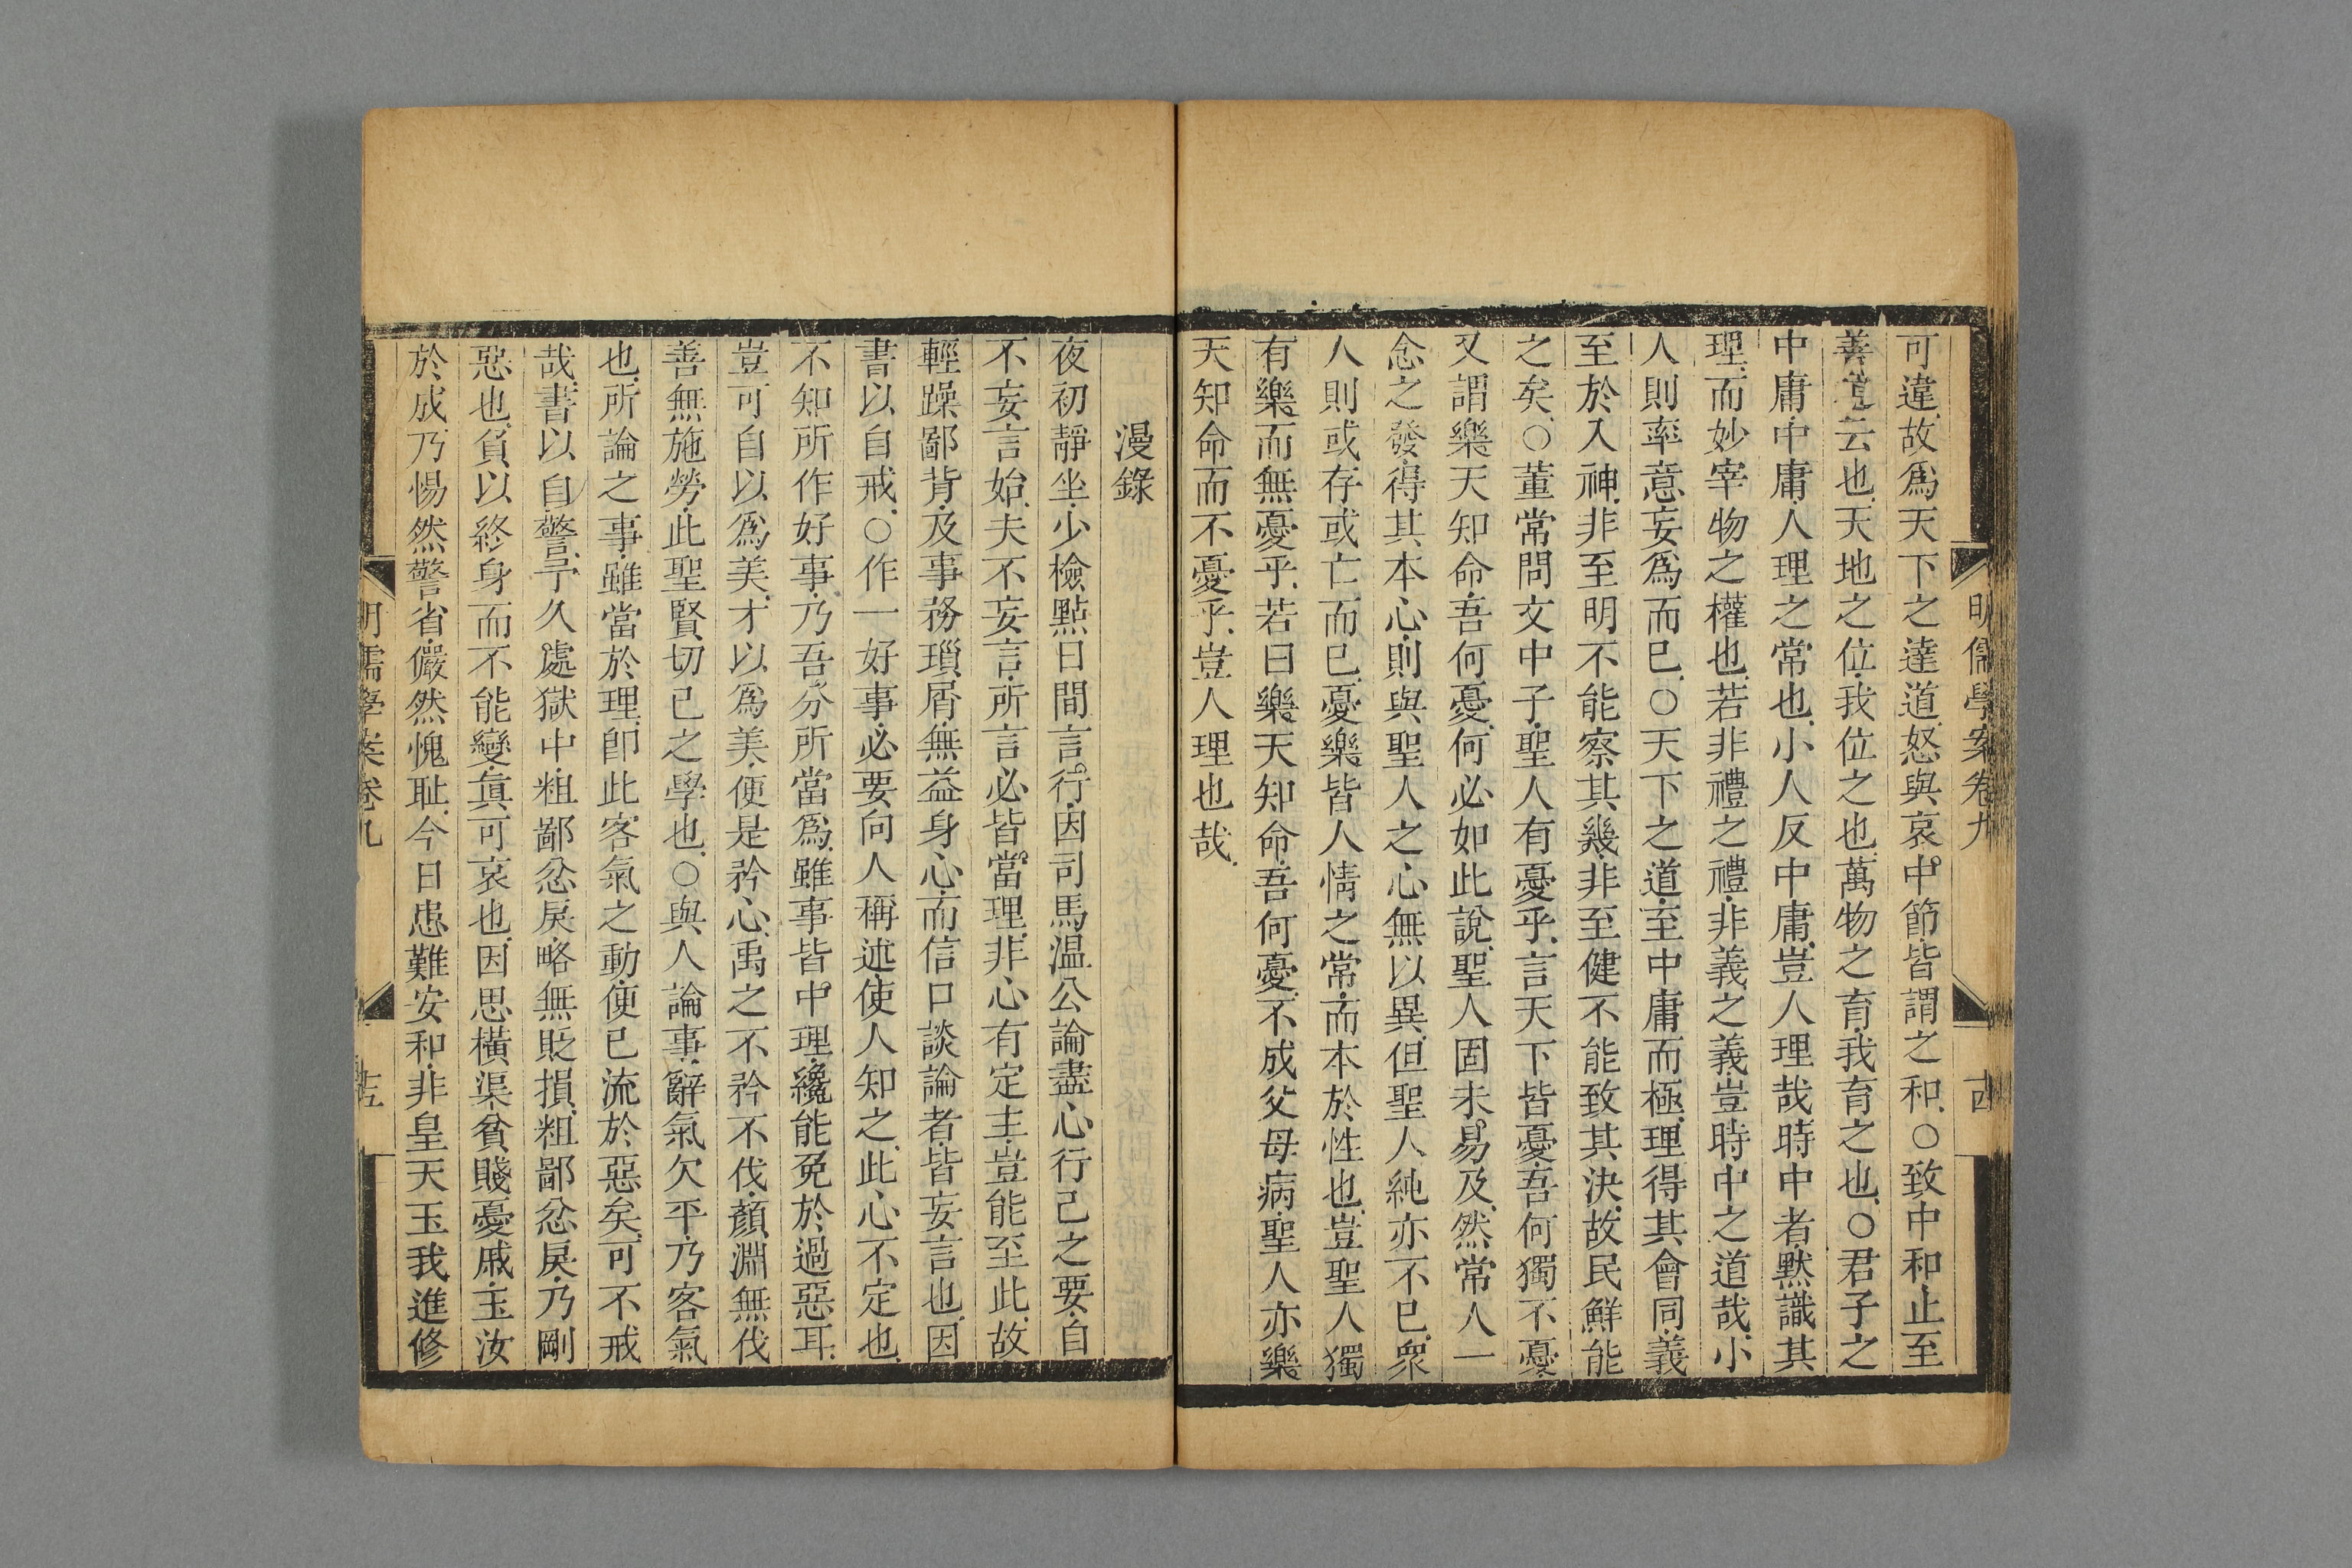 明儒學案卷九
可違、故爲天下之達道、怒與哀中節、皆謂之和、○致中和止至
善云也、天地之位、我位之也、萬物之育、我育之也、○君子之
中庸、中庸、人理之常也、小人反中庸、豈人理哉、時中者、默識其
理、而妙宰物之權也、若非禮之禮、非義之義、豈時中之道哉、小
人則率意妄爲而已、○天下之道、至中庸而極、理得其會同、義
至於入神、非至明不能察其幾、非至健不能致其決、故民鮮能
之矣、○董常問文中子、聖人有憂乎、言天下皆憂、吾何獨不憂
又謂樂天知命、吾何憂、何必如此說、聖人固未易及、然常人一
念之發、得其本心、則與聖人之心無以異、但聖人純亦不已、衆
人則或存或亡而已、憂樂皆人情之常、而本於性也、豈聖人獨
有樂而無憂乎、若曰樂天知命、吾何憂、不成父母病、聖人亦樂
天知命而不憂乎、豈人理也哉、
漫錄
夜初靜坐、少檢點日間言行、因司馬温公論盡心行己之要、自
不妄言始、夫不妄言、所言必皆當理、非心有定主、豈能至此、故
輕躁鄙背、及事務瑣屑、無益身心、而信口談論者、皆妄言也、因
書以自戒、○作一好事、必要向人稱述、使人知之、此心不定也、
不知所作好事、乃吾分所當爲、雖事皆中理、纔能免於過惡耳、
豈可自以爲美、才以爲美、便是矜心、禹之不矜不伐、顏淵無伐
善無施勞、此聖賢切己之學也、○與人論事、辭氣欠平、乃客氣
也、所論之事、雖當於理、卽此客氣之動、便已流於惡矣、可不戒
哉、書以自警、予久處獄中、粗鄙忿戾、略無貶損、粗鄙忿戾、乃剛
惡也、負以終身而不能變、眞可哀也、因思橫渠貧賤憂戚、玉汝
於成、乃惕然警省、儼然愧耻、今日患難安和、非皇天玉我進修
明儒學案卷九